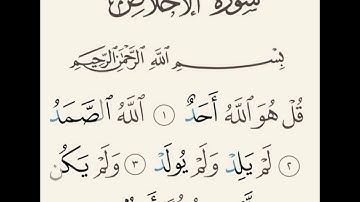 سورة الإخلاص
بِسْمِ ٱللَّهِ ٱلرَّحْمَٰنِ ٱلرَّحِيمِ
قُلْ هُوَ ٱللَّهُ أَحَدٌ ١ ٱللَّهُ ٱلصَّمَدُ
٢ لَمْ يَلِدْ وَلَمْ يُولَدْ ٣ وَلَمْ يَكُن